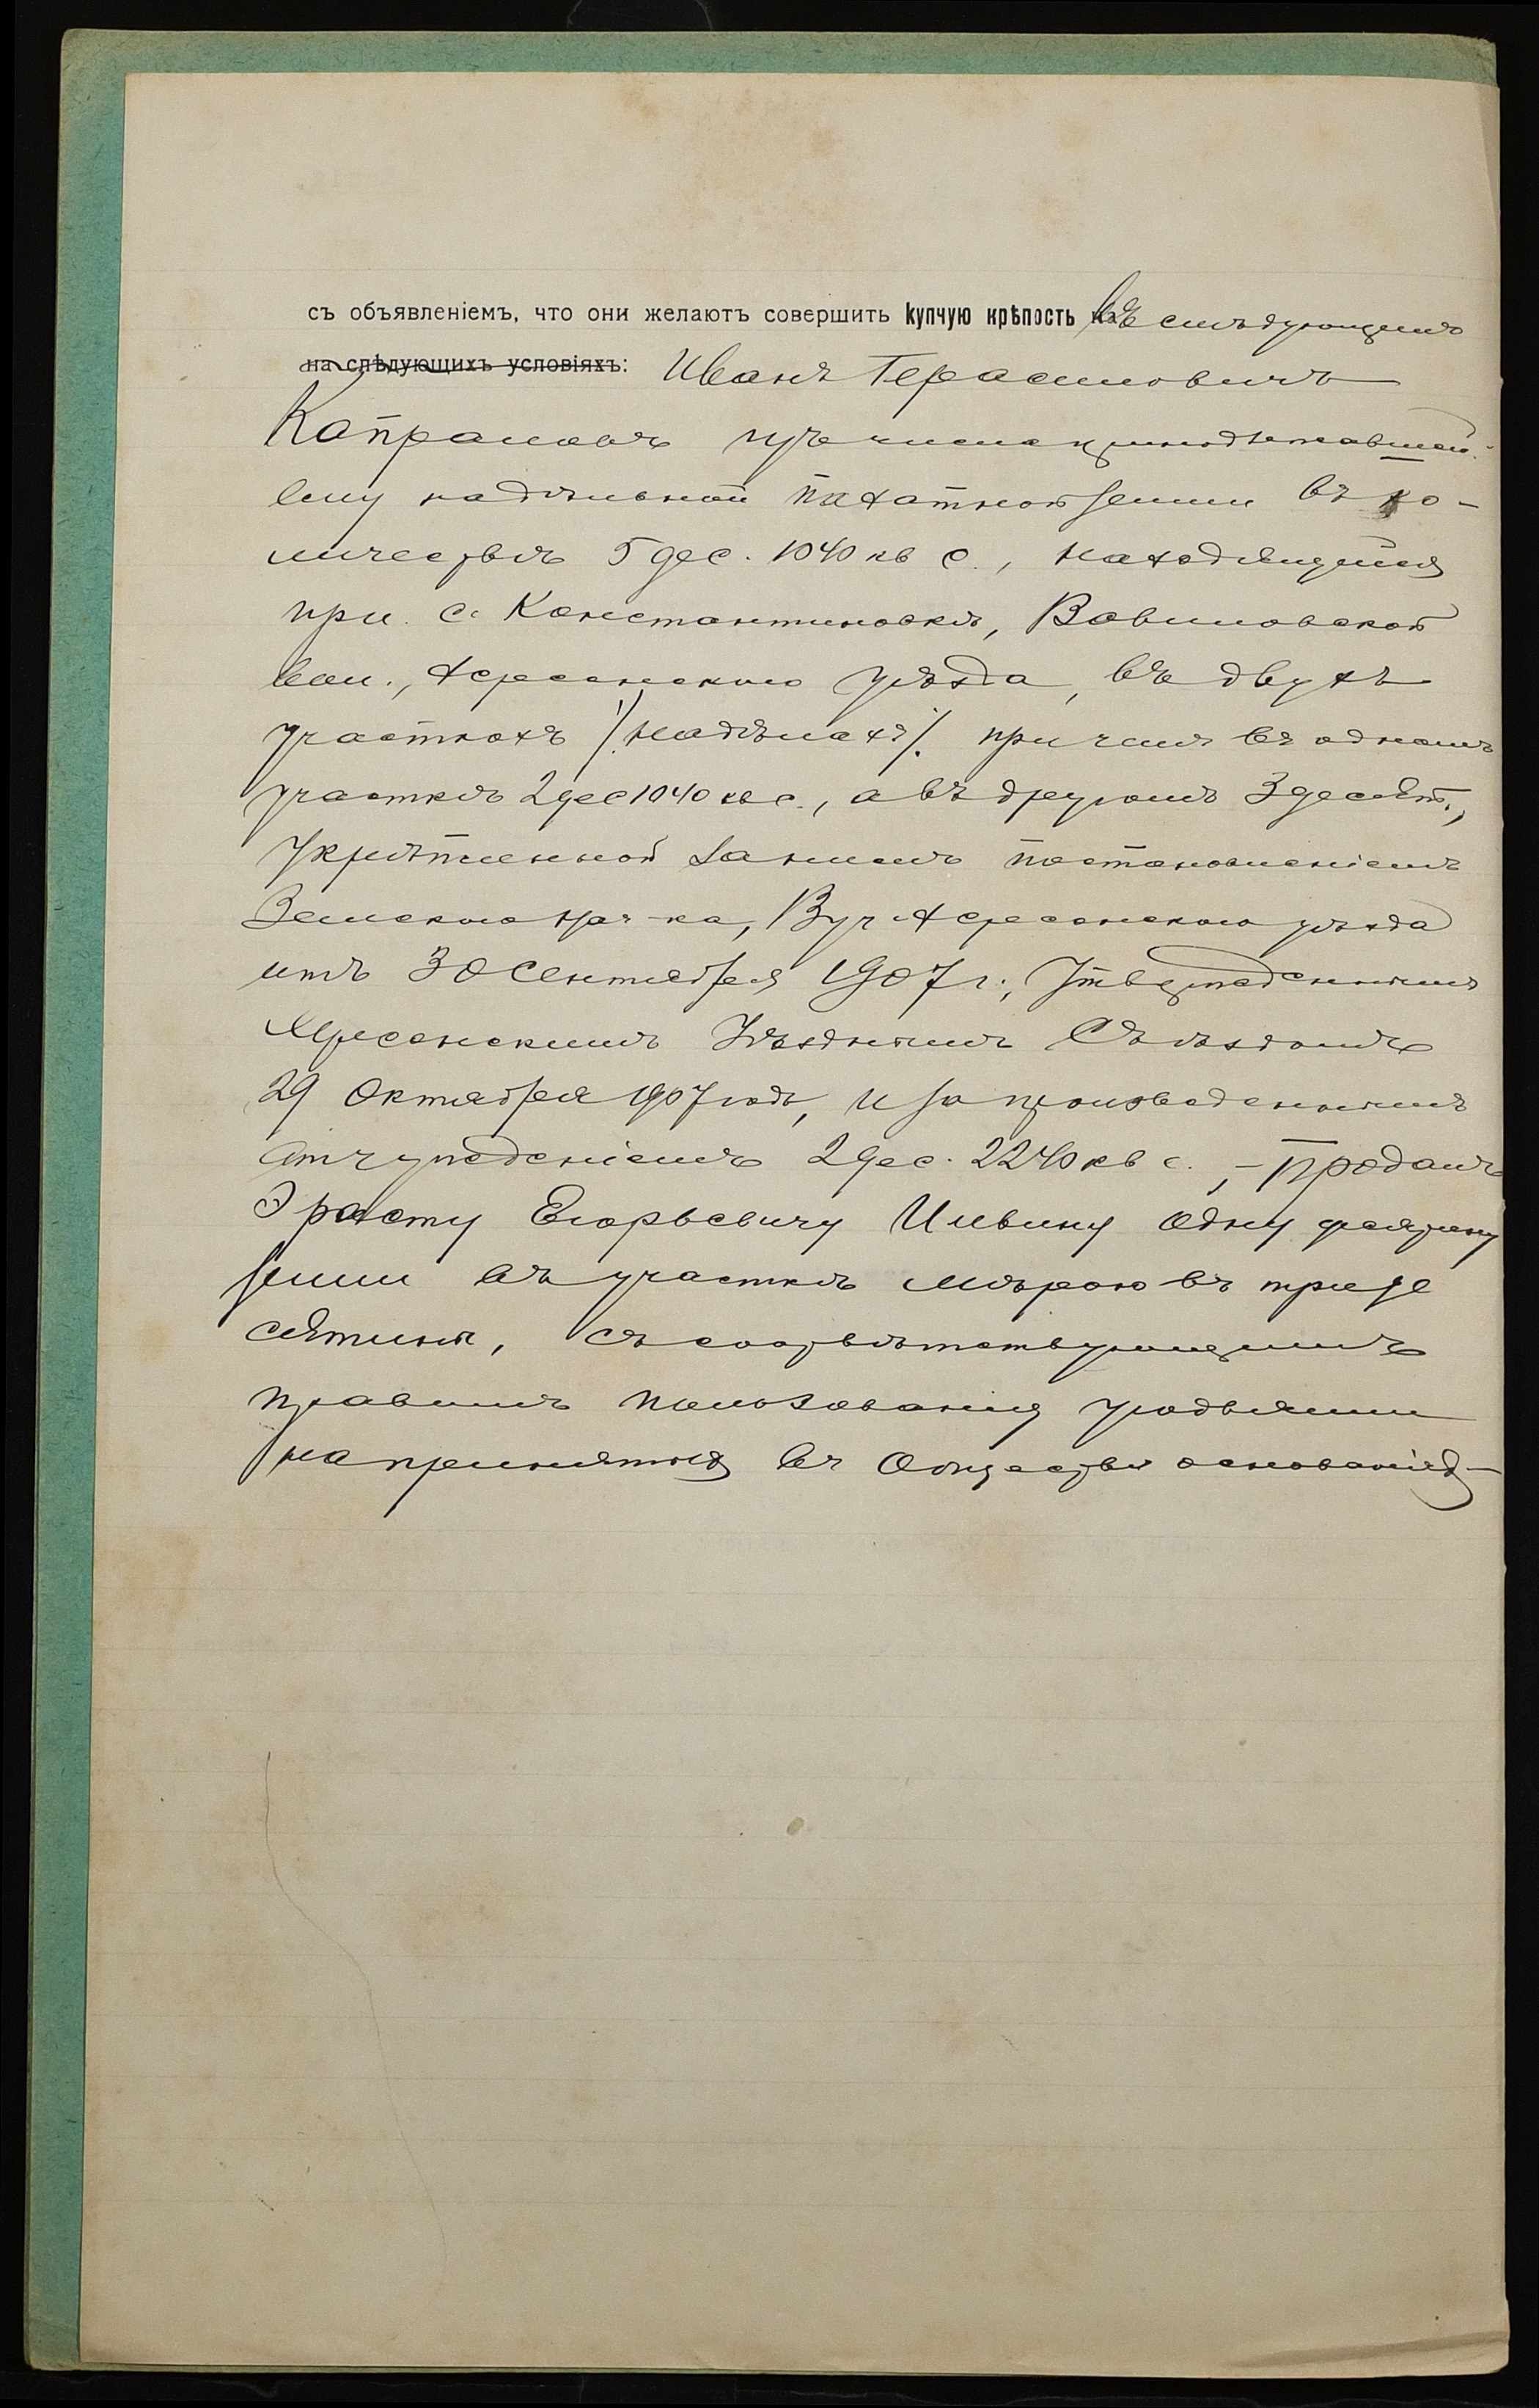 съ объявленіемъ, что они желаютъ совершить купчую крѣпость въ слѣдующемъ
на слѣдующихъ условіяхъ: Иванъ Герасимовичъ
Капрановъ изъ числа принадлежавшей
ему надѣльной пахатной земли въ ко-
личествѣ 5 дес. 1040 кв с., находящейся
при с. Константиновкѣ, Вавиловской
вол., Херсонскаго уѣзда, въ двухъ
участкахъ /надѣлахъ/. при чемъ въ одномъ
участкѣ 2 дес 1040 кв с., а въ другомъ 3 десят.,
укрѣпленной за нимъ постановленіемъ
Земскаго Нач-ка, 13 уч Херсонскаго уѣзда
отъ 30 Сентября 1907 г., утвержденнымъ
Херсонскимъ Уѣзднымъ Съѣздомъ
29 Октября 1907 года, и за произведеннымъ
отчужденіемъ 2 дес. 2240 кв с., – продалъ
Эрасту Егорьевичу Ильину одну десятину
земли въ участкѣ мѣрою въ три де
сятины, съ соотвѣтствующимъ
правомъ пользованія угодьями
на принятыхъ въ Обществѣ основаніяхъ –